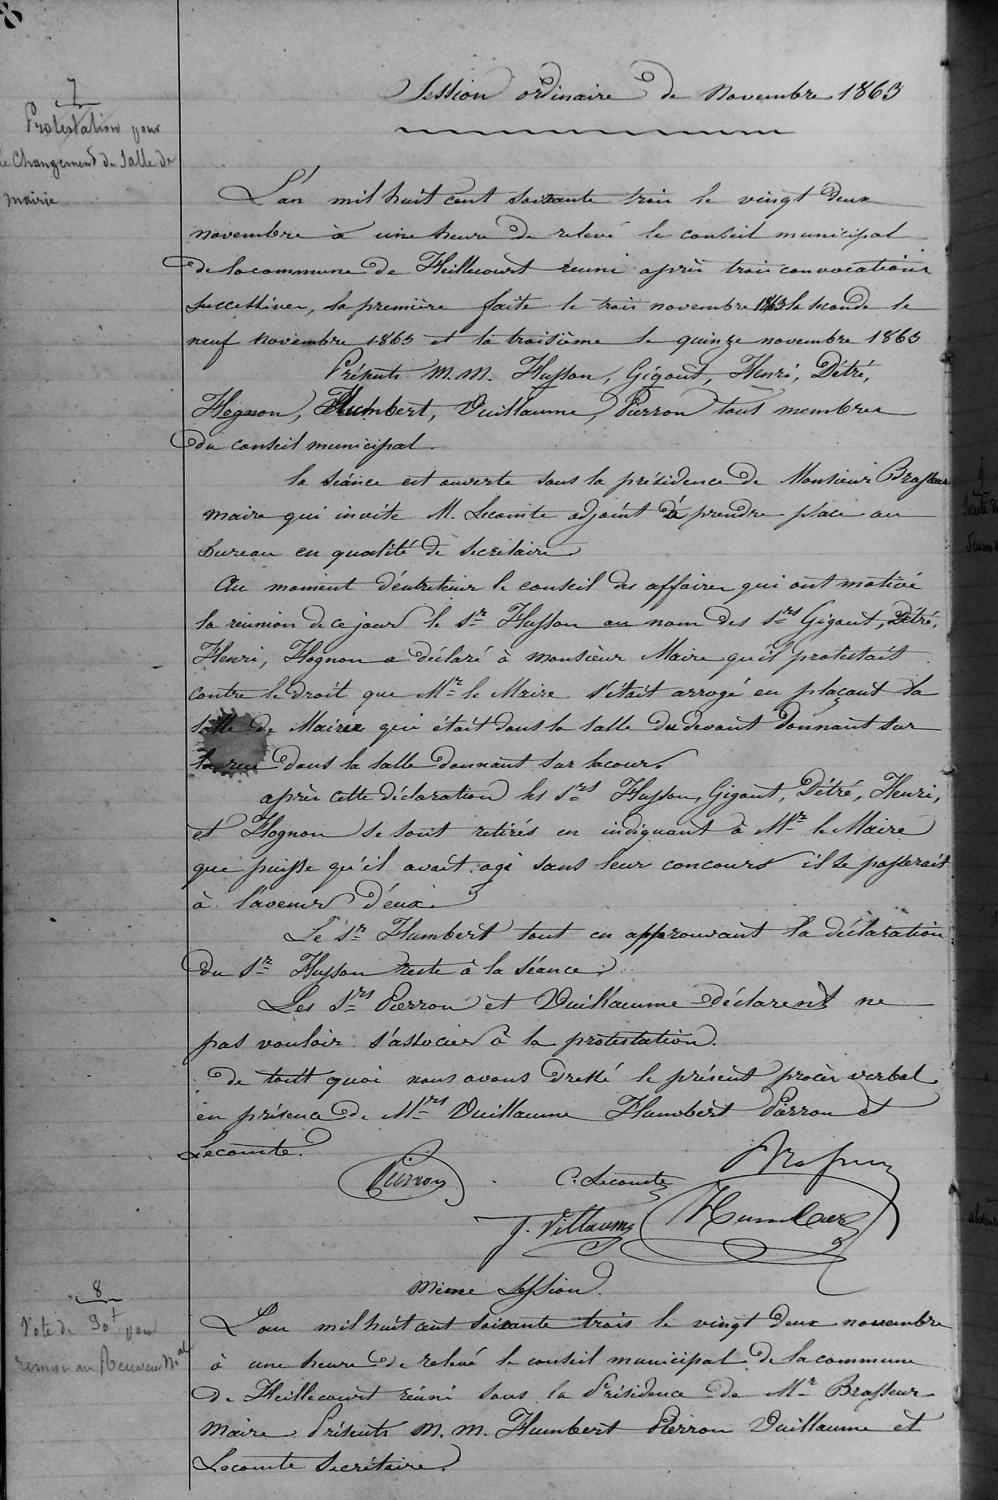 8
Session ordinaire de Novembre 1863
7
Protestation pour
le Changement de Salle de
Mairie
L'an mil huit cent soixante trois le vingt deux
novembre à une heure de relevé le conseil municipal
de la commune de Heillecourt reuni après trois convocations
successives, la première faite le trois novembre 1863 la seconde le
neuf novembre 1863 et la troisième le quinze novembre 1863
Présents M.M. Husson, Gigout, Henri, Détré,
Hognon, Humbert, Vuillaume, Pierron tous membres
du conseil municipal.
la séance est ouverte sous la présidence de Monsieur Brasseur
maire qui invite M. Lecomte adjoint à prendre place au
bureau en qualité de secrétaire
Au moment d'entretenir le conseil des affaires qui ont motivé
la réunion de ce jour le Sr Husson au nom des Srs Gigout, Détré,
Henri, Hognon a déclaré à monsieur Maire qu'il protestait
contre le droit que Mr le Maire s'était arrogé en plaçant la
salle de Mairie qui était dans la salle du devant donnant sur
la rue dans la salle donnant sur la cour.
après cette déclaration les Srs Husson, Gigout, Détré, Henri,
et Hognon se sont retirés en indiquant à Mr le Maire
que puisse qu'il avait agi sans leur concours il se passerait
à l'avenir d'eux.
Le Sr Humbert tout en approuvant la déclaration
du Sr Husson reste à la séance.
Les Srs Pierron et Vuillaume déclarent ne
pas vouloir s'associer à la protestation.
de tout quoi nous avons dressé le présent procès verbal
en présence de Mrs Vuillaume Humbert Pierron et
Lecomte.
Pierron C. Lecomte Brasseur
J. Villaume Humbert
8
Vote de 30f pour
remise au Receveur Mal
Même Session.
L'an mil huit cent soixante trois le vingt deux novembre
à une heure de relevé le conseil municipal de la commune
de Heillecourt réuni sous la Présidence de Mr Brasseur
Maire Présents M.M. Humbert Pierron Vuillaume et
Lecomte Secrétaire.